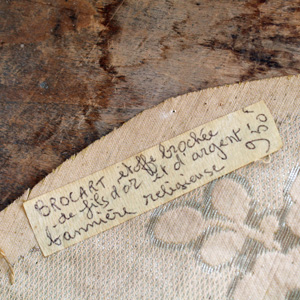 BROCART etoffe brochée
de fils d'or et d'argent
bannière religieuse
950